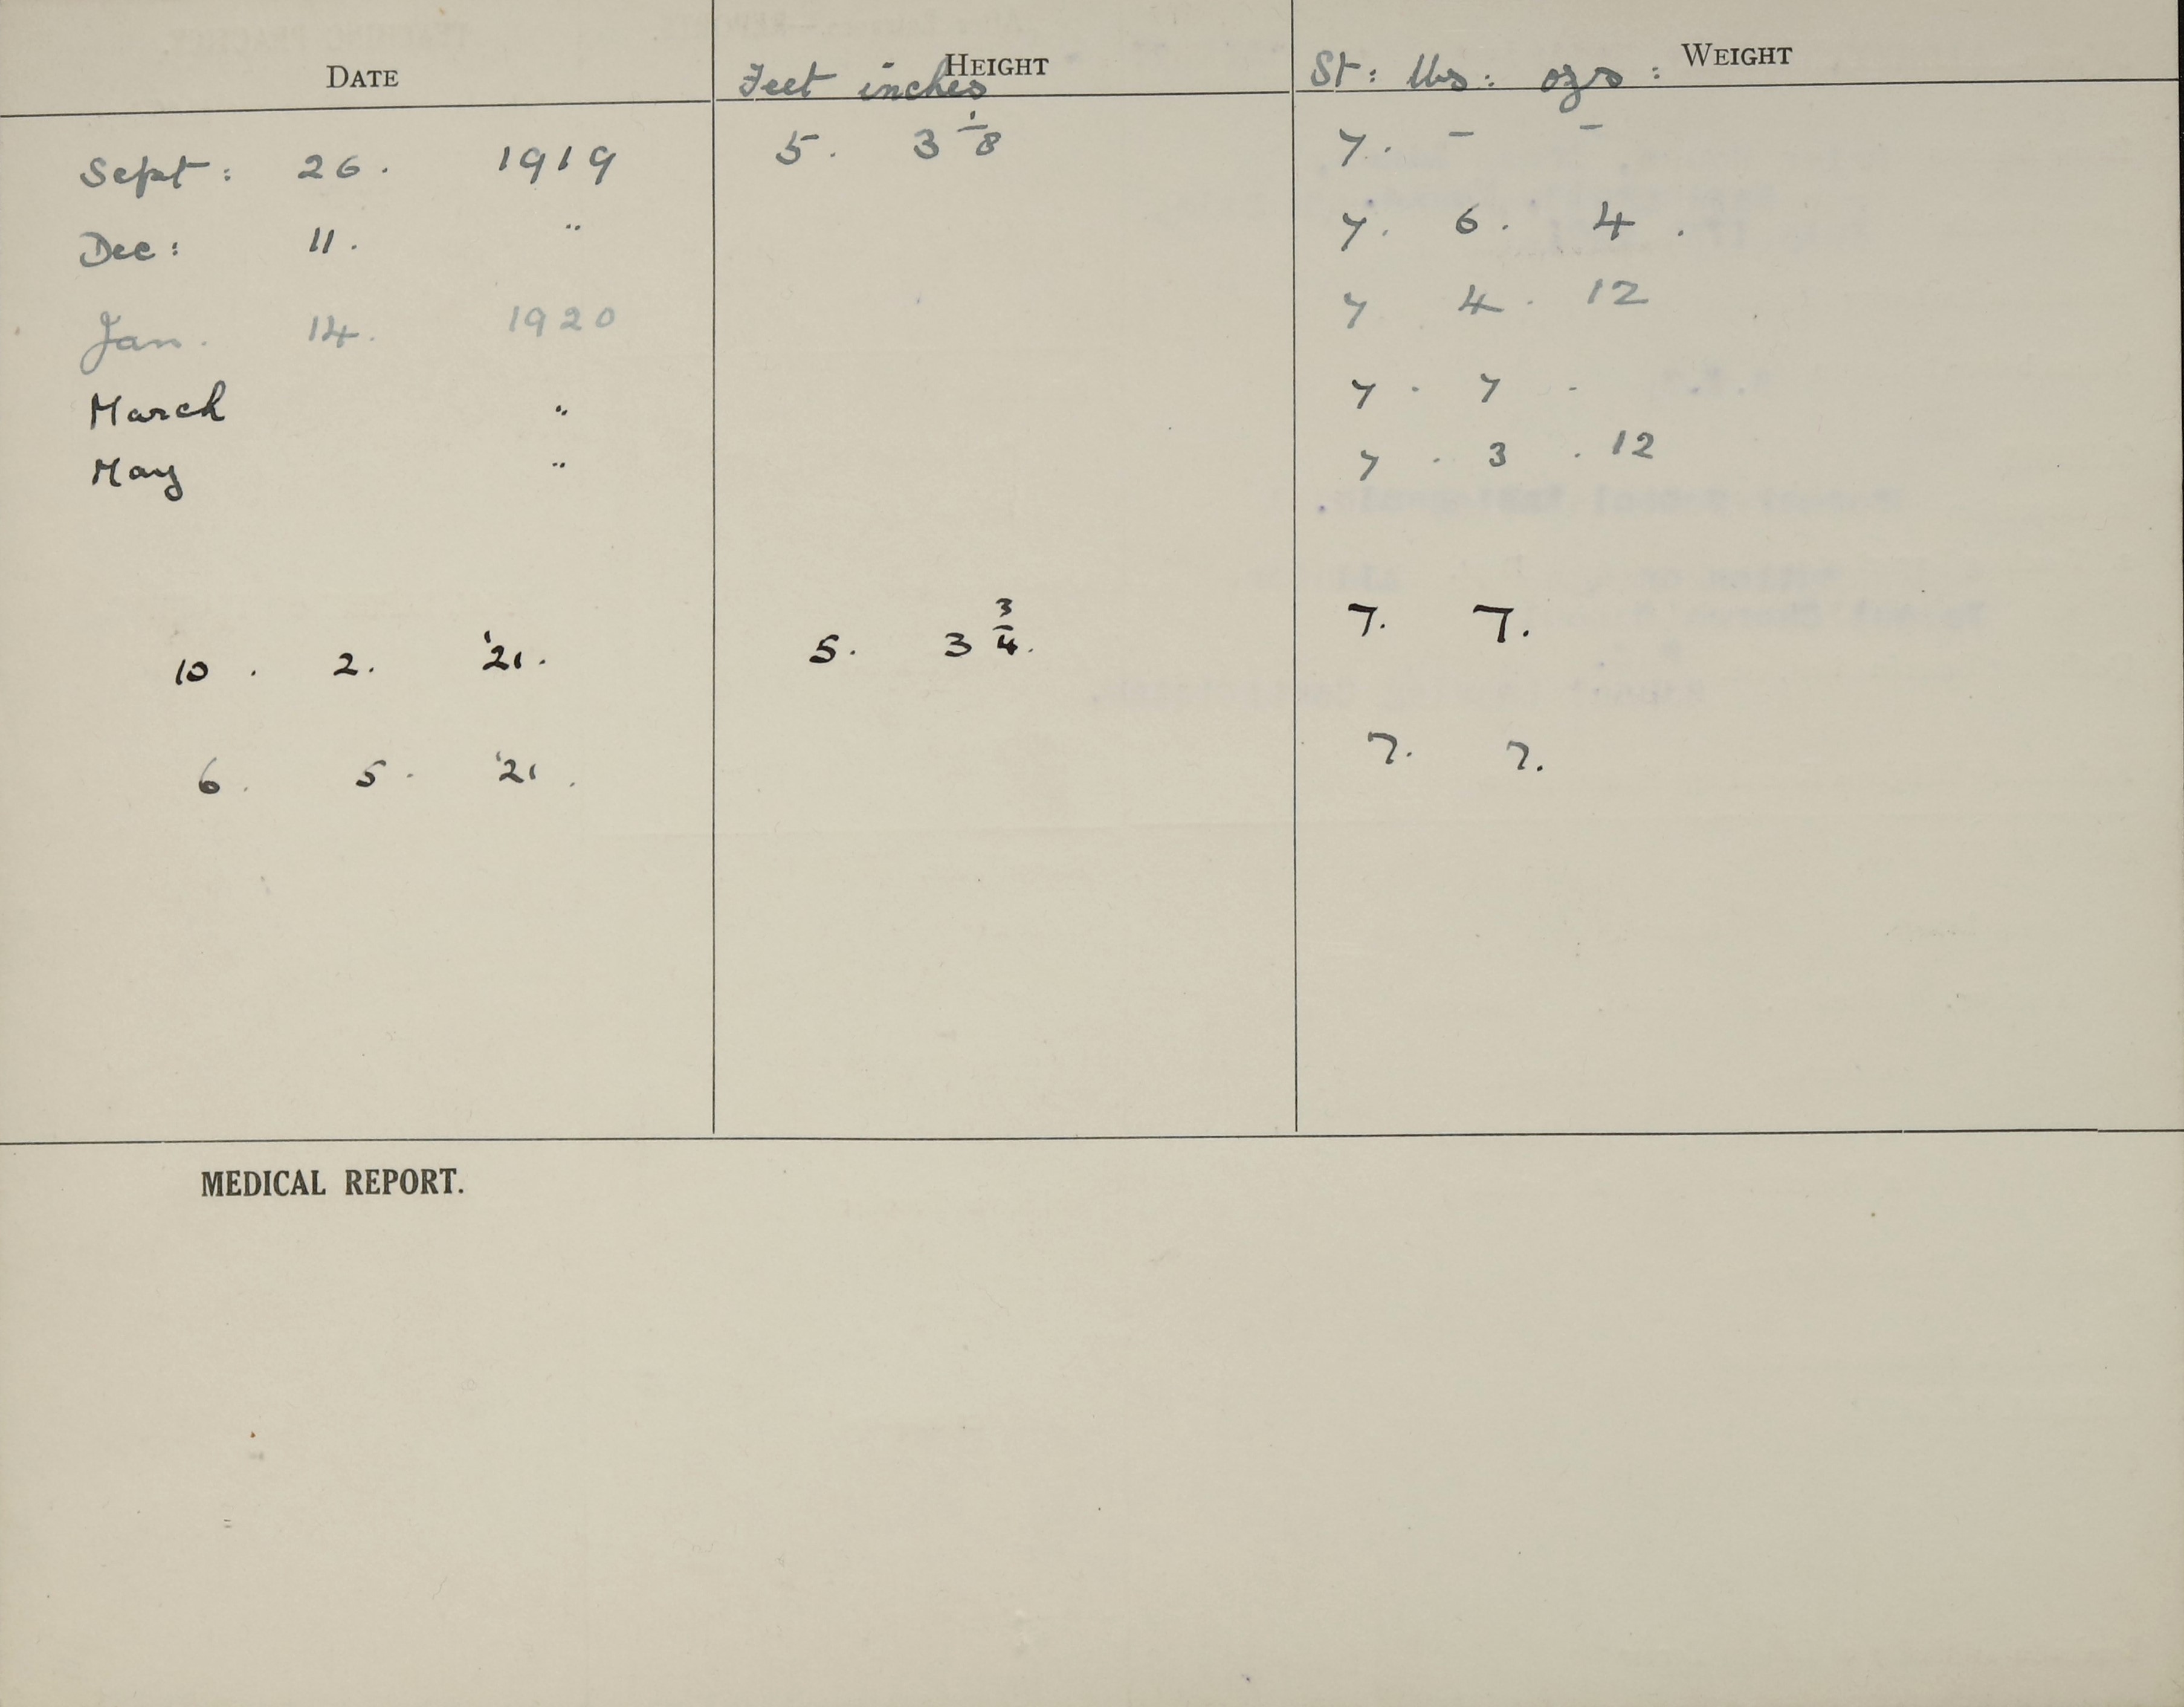 DATE HEIGHT WEIGHT
Feet inches St: lbs: ozs:
Sept: 26. 1919 5. 3 1/8 7. – –
Dec: 11. " 7. 6. 4.
Jan. 14. 1920 7 4. 12
March " 7. 7 -
May " 7. 3. 12
10. 2. '21. 5. 3 3/4. 7. 7.
6. 5. '21. 7. 7.
MEDICAL REPORT.